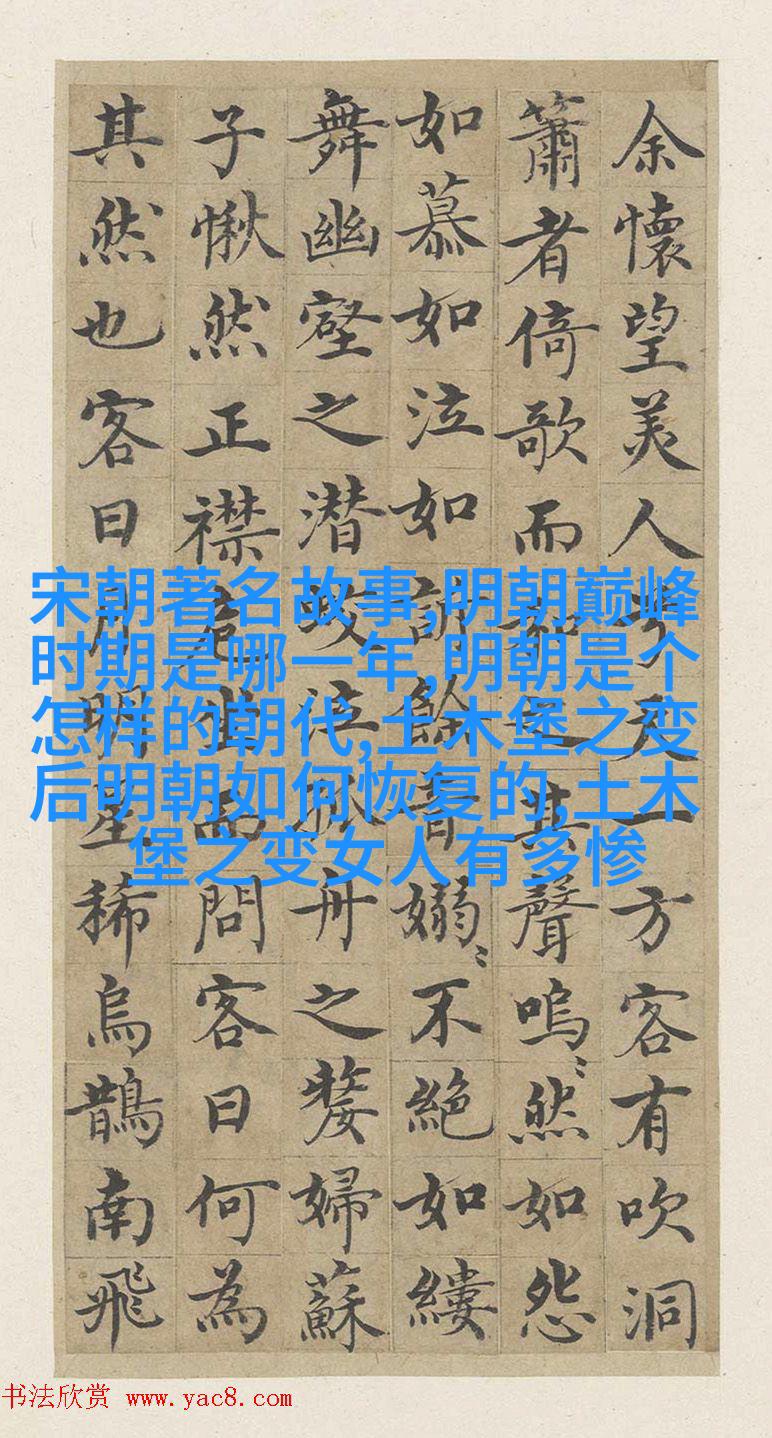 余懷望美人兮天一方客有吹洞
簫者倚歌而和之其聲嗚〻然如怨
如慕如泣如訴餘音嫋〻不絕如縷
舞幽壑之潜蛟泣孤舟之嫠婦蘇
子愀然正襟危坐而問客曰何為
其然也客曰月明星稀烏鵲南飛
宋朝著名故事,明朝巅峰
时期是哪一年,明朝是个
怎样的朝代,土木堡之变
后明朝如何恢复的,土木
堡之变女人有多惨
书法欣赏 www.yac8.com